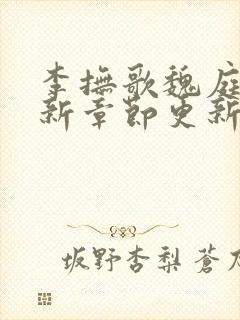 李抚歌魏庭
新章节更新
坂野杏梨 蒼